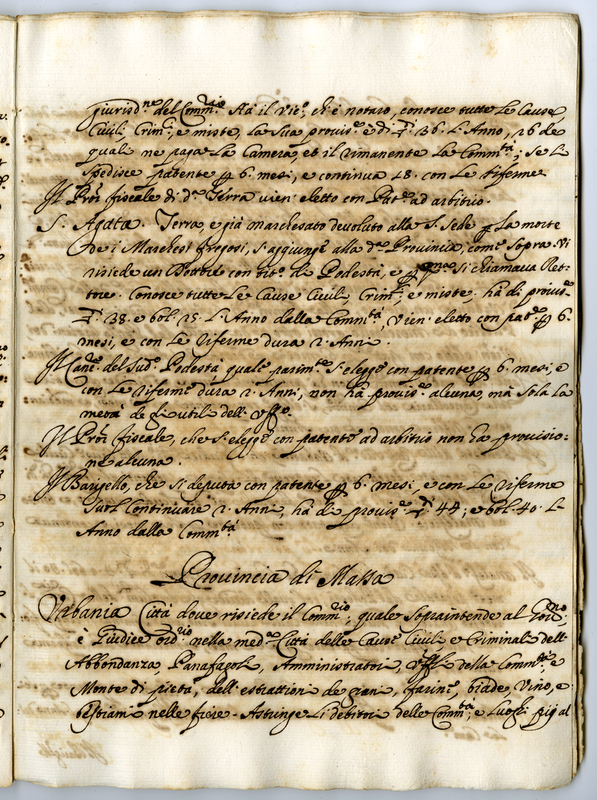 giurisd.ne del Comm.rio Hà il Vic.o, ch'è notaro, conosce tutte le Cause
Civili Crim.i e miste, la sua provis.e è di 36. l'Anno, 16 de
quali ne paga la Camera, et il rimanente la Comm.tà; se li
spedisce patente p 6. mesi, e continua 18. con le riferme.
Il Pro.r fiscale di d.a Terra vien' eletto con Pat.e ad arbitrio.
S. Agata. Terra, e già marchesato devoluto alla S. Sede p la morte
de i Marchesi fregosi, s'aggiunge alla d.a Provincia, come sopra. Vi
risiede un Dottore con tit.o di Podestà, e p si chiamava Ret-
tore. Conosce tutte le Cause Civili, Crim.i, e miste. hà di provis.ne
38. e bol. 15. l'Anno dalla Comm.tà, vien' eletto con pat.e p 6.
mesi, e con le riferme dura 2. Anni.
Il Canc.e del Sud.o Podestà quale parim.te s'elegge con patente p 6. mesi, e
con le riferme dura 2. Anni, non hà provis.e alcuna, mà sola la
metà de gli utili dell' uff.o
Il Pro.r fiscale, che s'elegge con patente ad arbitrio non ha provisio=
ne alcuna.
Il Barigello, che si deputa con patente p 6. mesi, e con le riferme
suol continuare 2. Anni, hà di provis.e 44; e bol. 40. l'
Anno dalla Comm.tà
Provincia di Massa
Urbania Città dove risiede il Comm.rio, quale sopraintende al Gov.no,
è Giudice ord.rio nella med.a Città delle Cause Civili e Criminali dell'
Abbondanza, Panafagoli, Amministratori, uff.li della Comm.tà, e
Monte di pietà, dell' estrattioni de grani, farine, biade, Vino, e
bestiami nelle fiere. Astringe li debitori delle Comm.tà, e Luoghi pij al